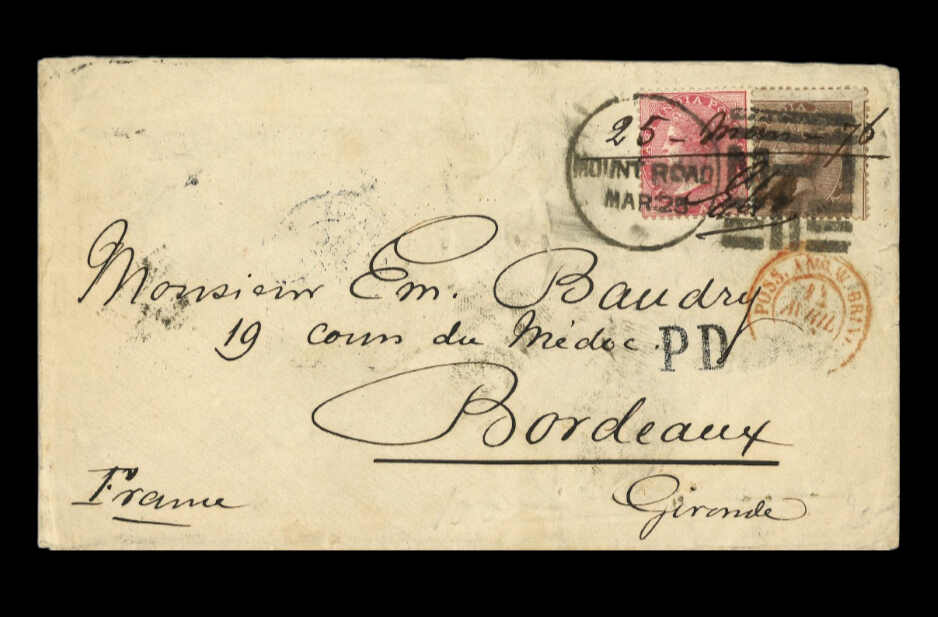 INDIA PO
25 - 76
MOUNT ROAD
MAR 25
POSS. ANG. V. BRI
AVRIL
Monsieur Em. Baudry
19 cours du Médoc.
PD
Bordeaux
France
Gironde